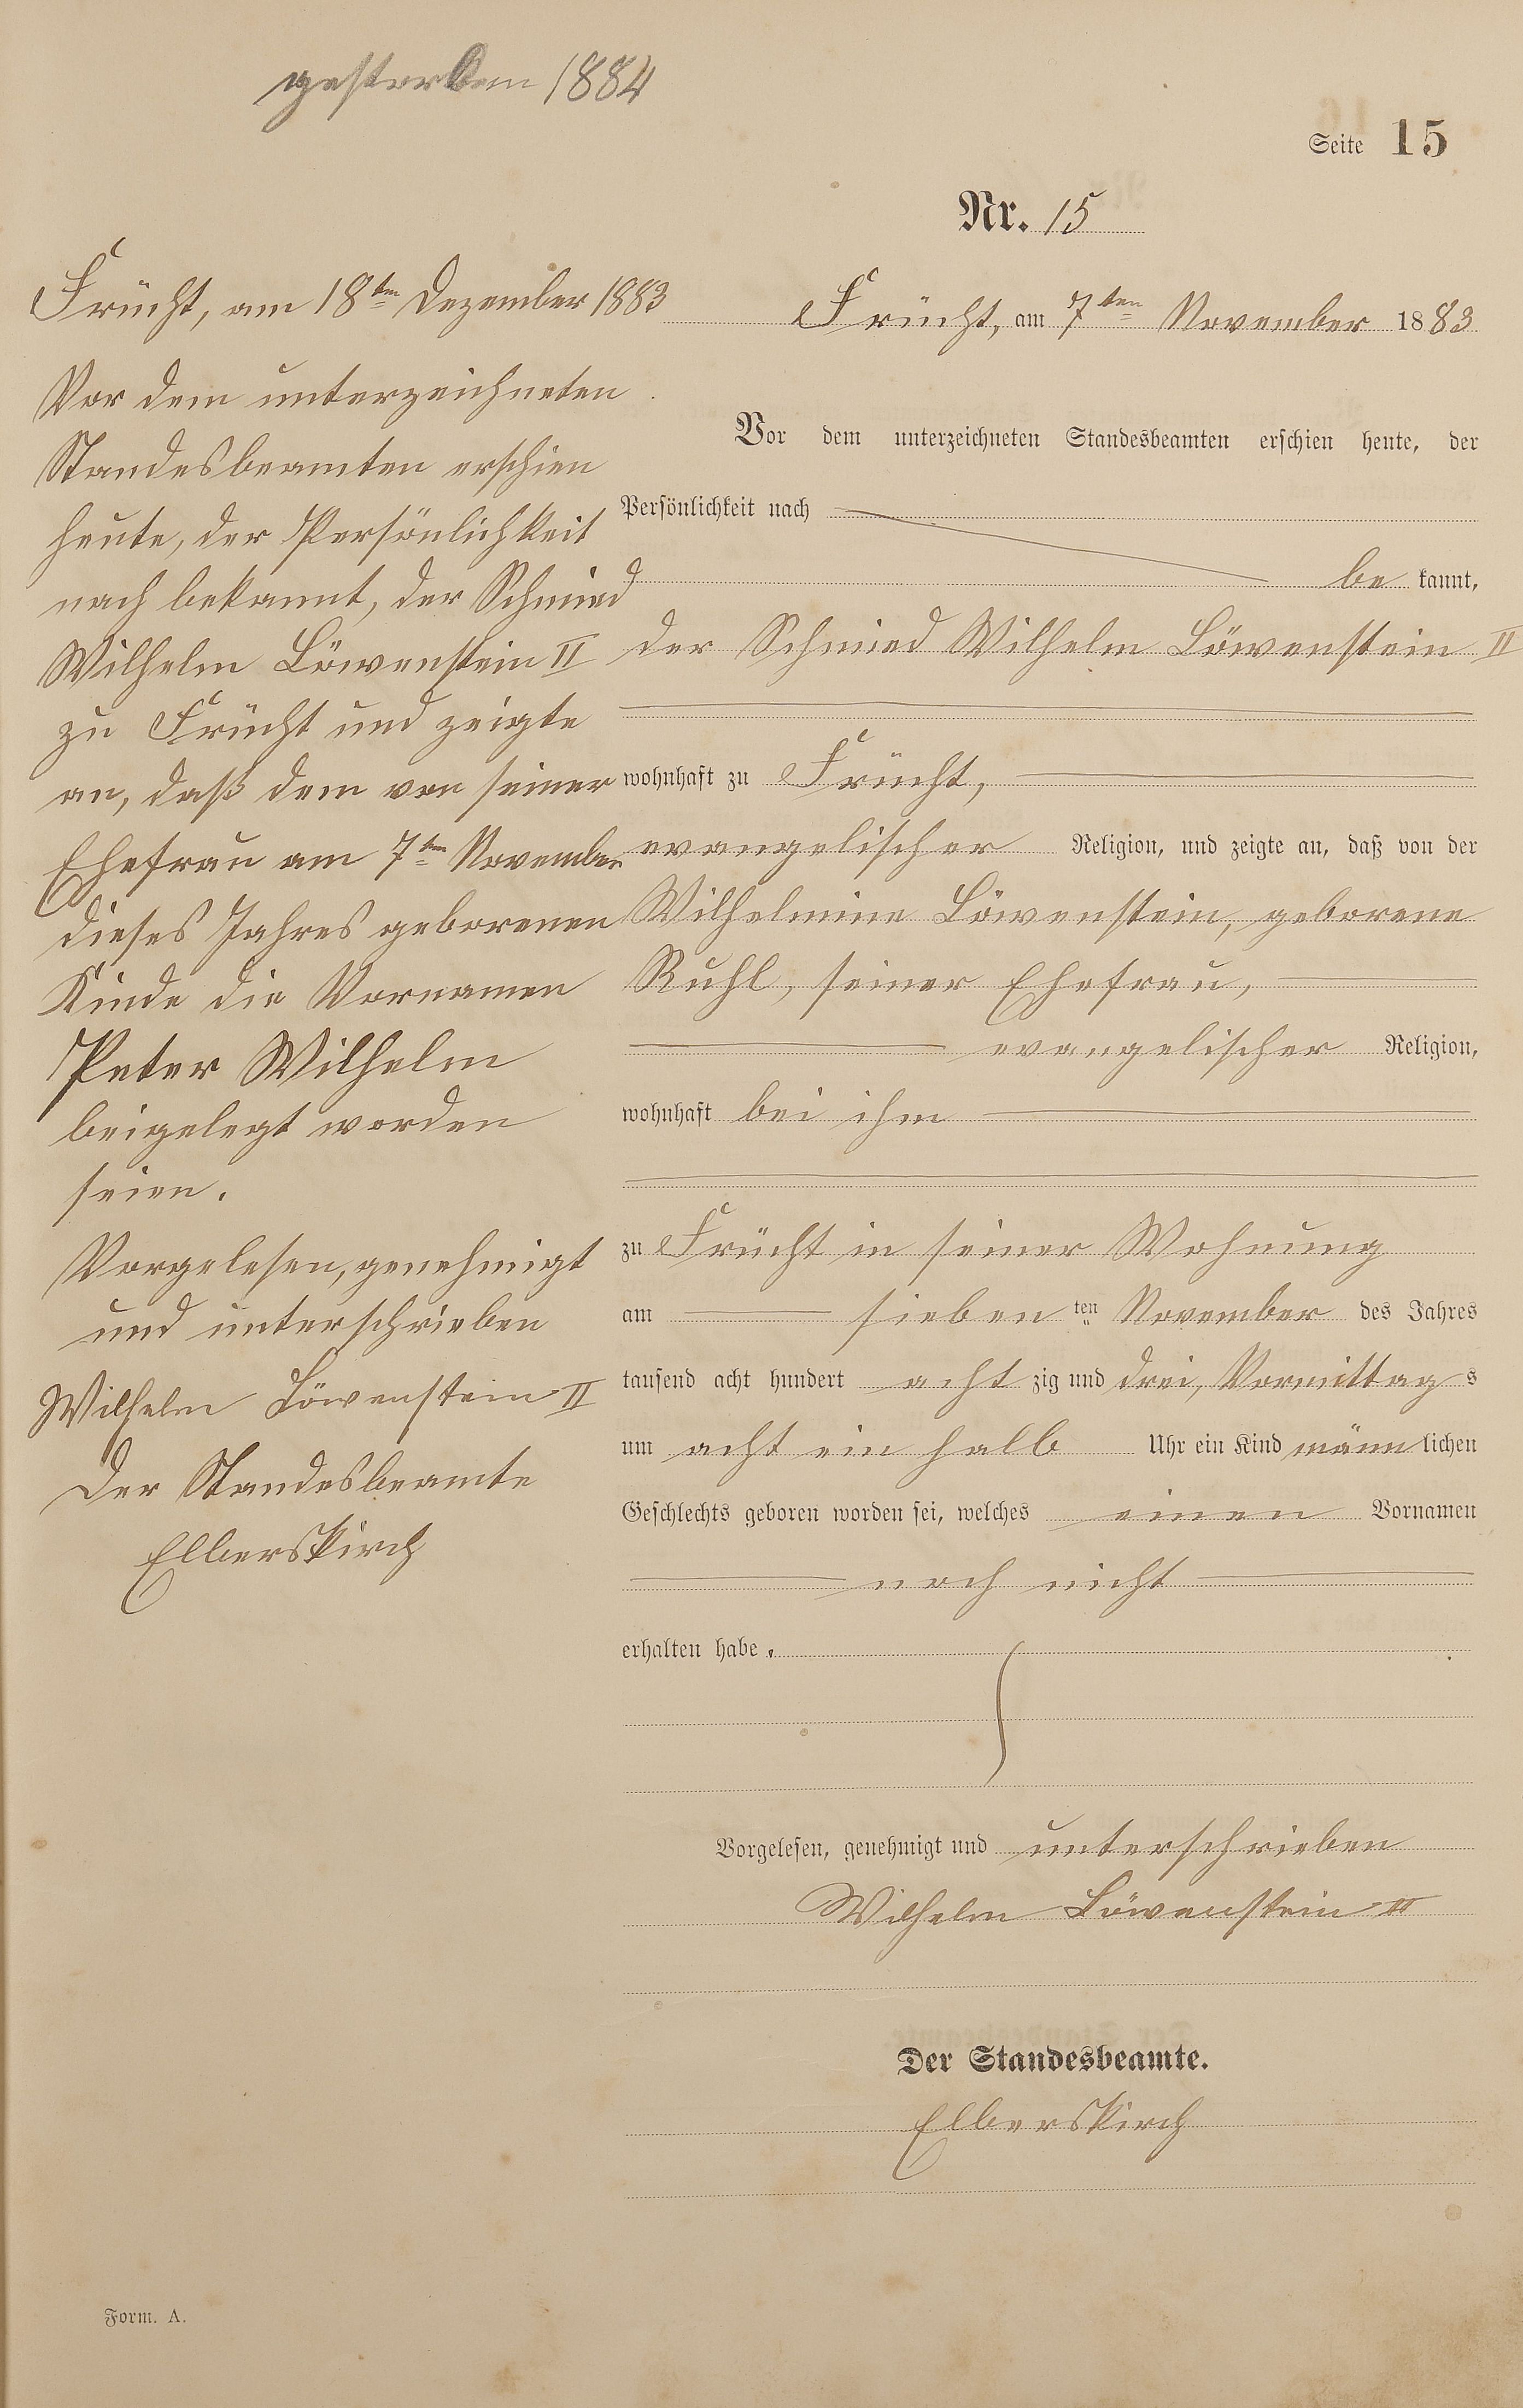 gestorben 1884
Seite 15
Nr. 15
Frücht, am 18ten Dezember 1883
Vor dem unterzeichneten
Standesbeamten erschien
heute, der Persönlichkeit
nach bekannt, der Schmied
Wilhelm Löwenstein II
zu Frücht und zeigte
an, daß dem von seiner
Ehefrau am 7ten November
dieses Jahres geborenen
Kinde die Vornamen
Peter Wilhelm
beigelegt worden
seien.
Vorgelesen, genehmigt
und unterschrieben
Wilhelm Löwenstein II
Der Standesbeamte
Elberskirch
Frücht, am 7ten November 1883
Vor dem unterzeichneten Standesbeamten erschien heute, der
Persönlichkeit nach
be kannt,
der Schmied Wilhelm Löwenstein II
wohnhaft zu Frücht,
evangelischer Religion, und zeigte an, daß von der
Wilhelmine Löwenstein, geborene
Ruhl, seiner Ehefrau,
evangelischer Religion,
wohnhaft bei ihm
zu Frücht in seiner Wohnung
am sieben ten November des Jahres
tausend acht hundert acht zig und drei, Vormittag s
um acht ein halb Uhr ein Kind männ lichen
Geschlechts geboren worden sei, welches einen Vornamen
noch nicht
erhalten habe.
Vorgelesen, genehmigt und unterschrieben
Wilhelm Löwenstein II
Der Standesbeamte.
Elberskirch
Form. A.